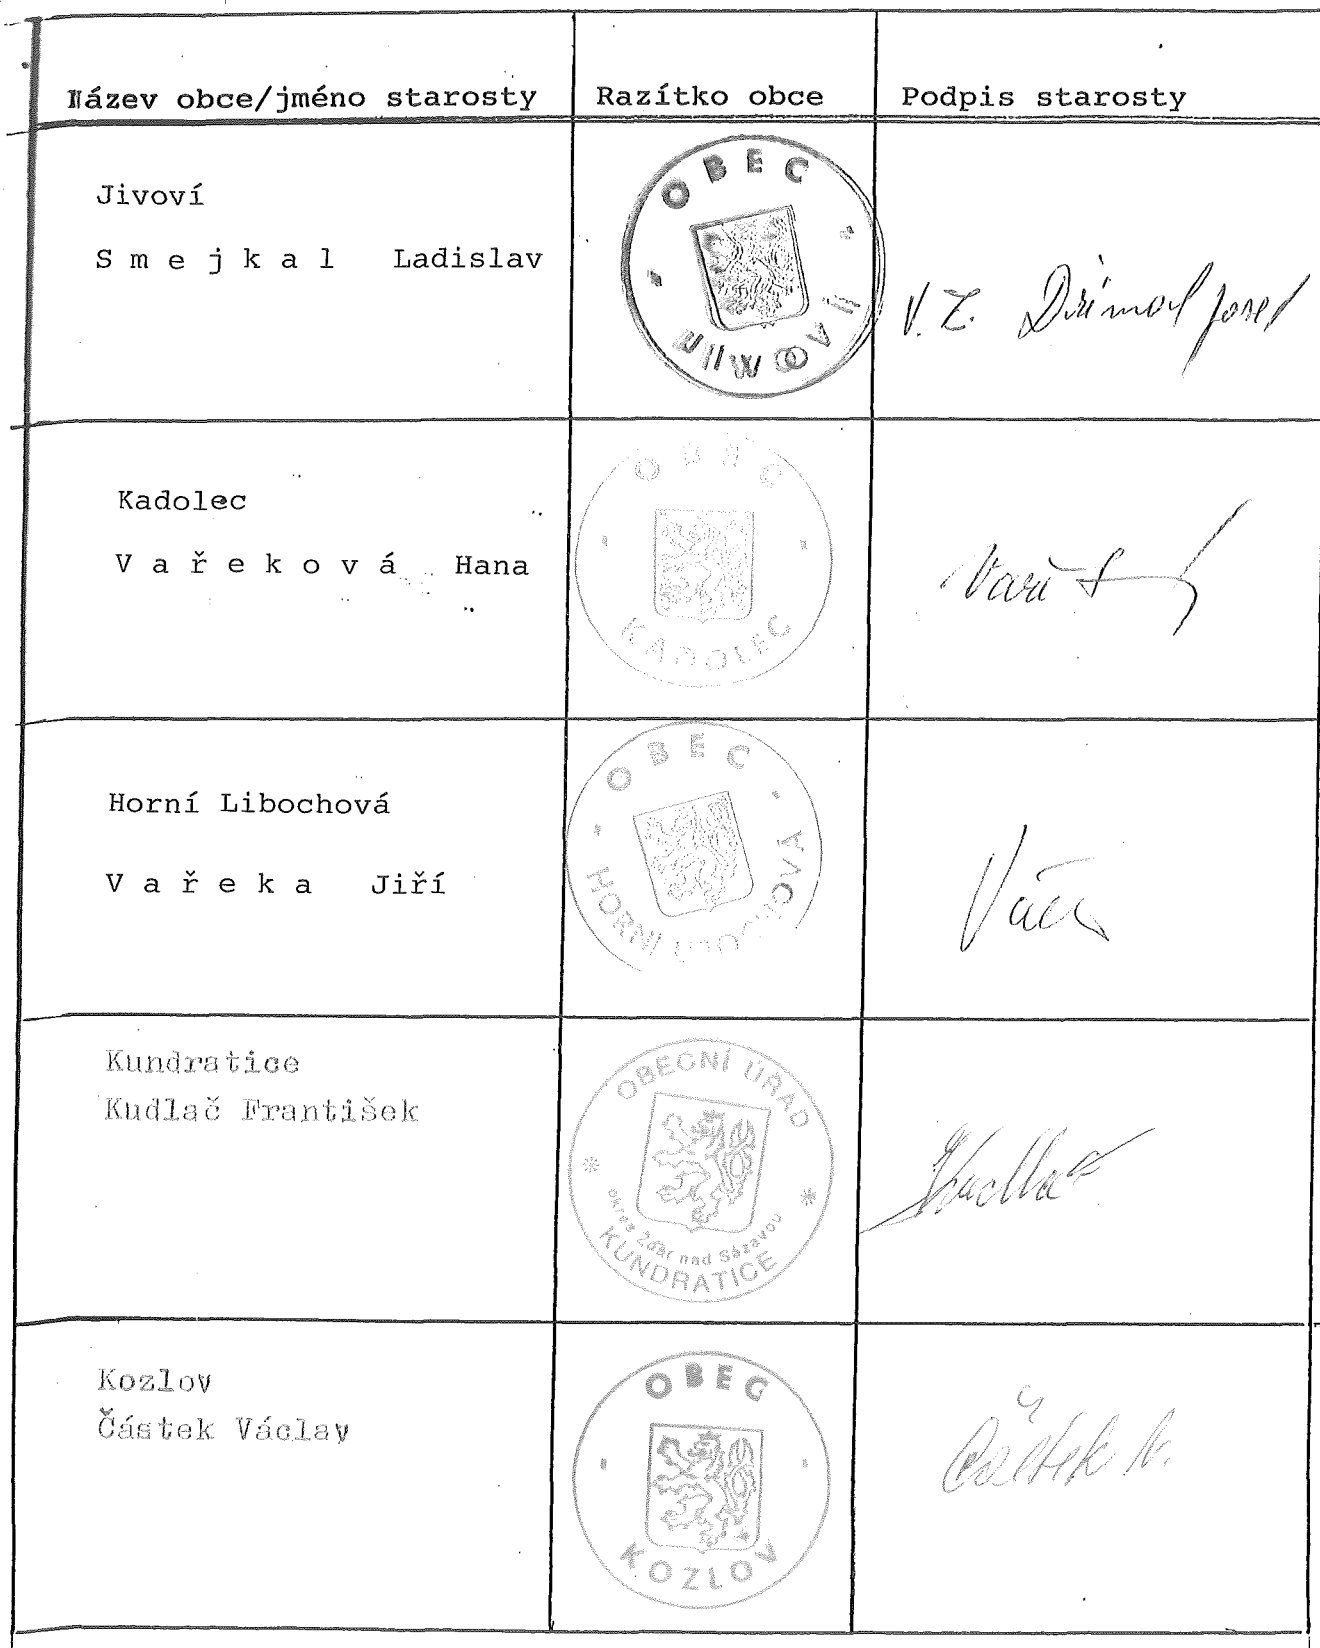 Název obce/jméno starosty Razítko obce Podpis starosty
Jivoví
S m e j k a l Ladislav
OBEC
V. Z. Dřímal Josef
Kadolec
V a ř e k o v á Hana
OBEC
KADOLEC
Horní Libochová
V a ř e k a Jiří
OBEC
HORNÍ LIBOCHOVÁ
Kundratice
Kudlač František
OBECNÍ ÚŘAD
okres Žďár nad Sázavou
KUNDRATICE
Kudlač
Kozlov
Částek Václav
OBEC
KOZLOV
Částek V.